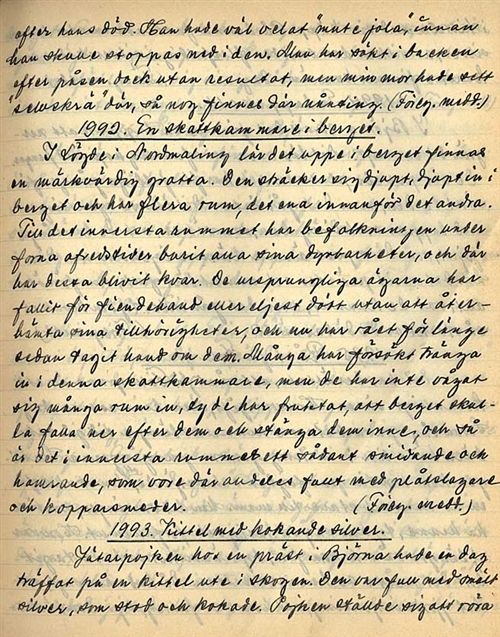 efter hans död. Han hade väl velat "mute jola", innan
han skulle stoppas ned i den. Man har sökt i backen
efter påsen, dock utan resultat, men min mor hade sett
"selvskrå" där, så nog finnes där nånting. (Föreg. medd.)
1992. En skattkammare i berget.
I Lögde i Nordmaling lär det uppe i berget finnas
en märkvärdig grotta. Den sträcker sig djupt, djupt in i
berget och har flera rum, det ena innanför det andra.
Till det innersta rummet har befolkningen under
forna ofredstider burit alla sina dyrbarheter, och där
har dessa blivit kvar. De ursprungliga ägarna har
fallit för fiendehand eller eljest dött utan att åter-
hämta sina tillhörigheter, och nu har rået för länge
sedan tagit hand om dem. Många har försökt tränga
in i denna skattkammare, men de har inte vågat
sig många rum in, ty de har fruktat, att berget skul-
le falla ner efter dem och stänga dem inne, och så
är det i innersta rummet ett sådant smidande och
hamrande, som vore där alldeles fullt med plåtslagare
och kopparsmeder. (Föreg. medd.)
1993. Kittel med kokande silver.
Jätarpojken hos en präst i Björna hade en dag
träffat på en kittel ute i skogen. Den var full med smält
silver, som stod och kokade. Pojken ställde sig att röra